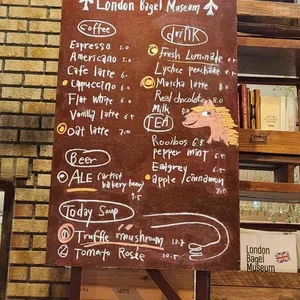 London Bagel Museum
Coffee
Espresso 5.0
Americano 5.0
Cafe latte 6.
Cappuccino 6
Flat white 6.0
Vanilla latte 6.5
Oat latte 7.0
Beer
ALE (artist
bakery beer)
9.5
Today Soup
① Truffle mushroom 12.5
② Tomato Rosie 10.5
drink
Fresh Lemonade 6.5
Lychee
Matcha latte 8.0
Real chocolate 8.0
Milk
TEA
Rooibos 6.5
pepper mint 6.5
Ealgrey 6.5
apple / cinnamon
7.5
London
Bagel
Museum